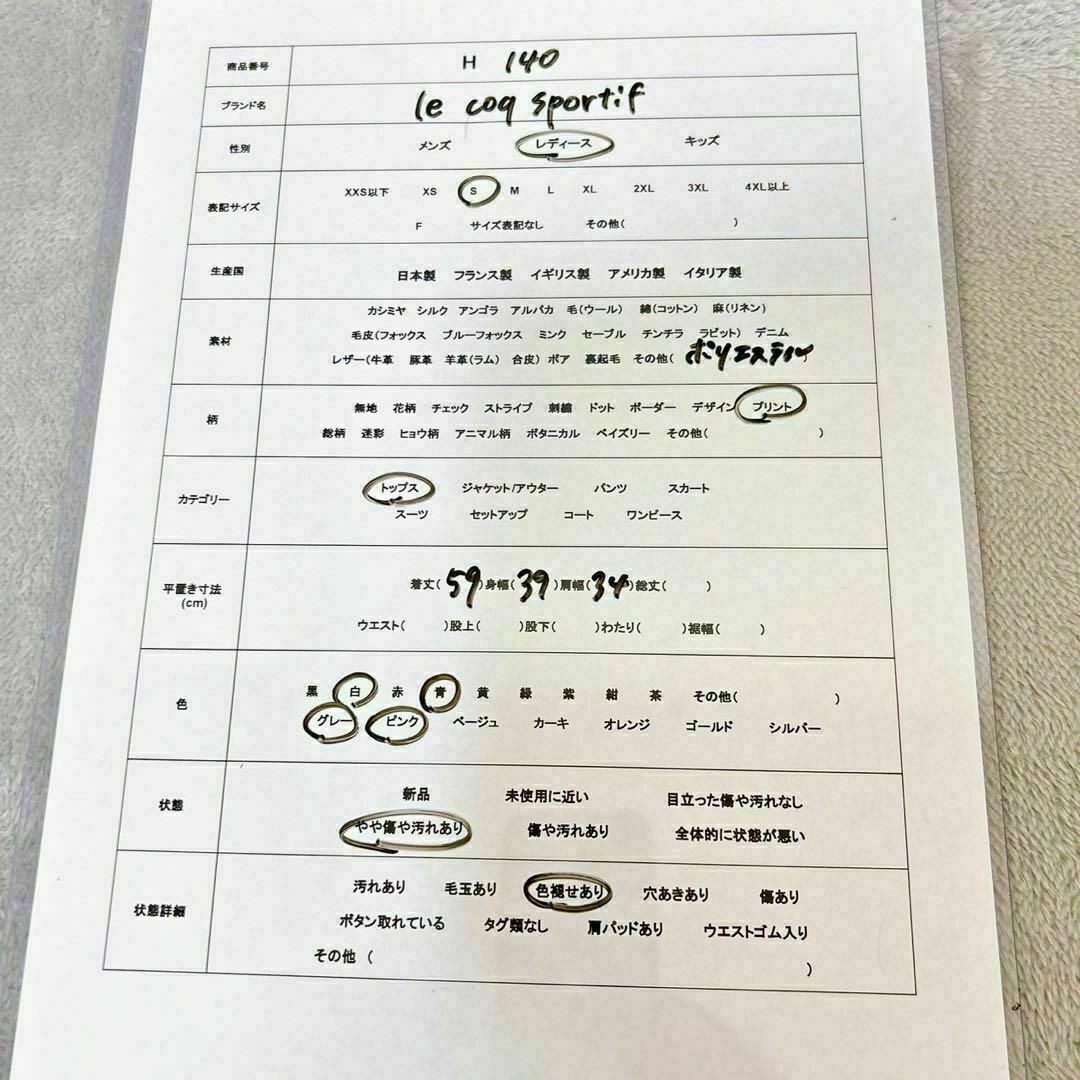 商品番号 H 140
ブランド名 le coq sportif
性別 メンズ レディース キッズ
表記サイズ XXS以下 XS S M L XL 2XL 3XL 4XL以上
F サイズ表記なし その他( )
生産国 日本製 フランス製 イギリス製 アメリカ製 イタリア製
カシミヤ シルク アンゴラ アルパカ 毛(ウール) 綿(コットン) 麻(リネン)
素材 毛皮(フォックス ブルーフォックス ミンク セーブル チンチラ ラビット) デニム
レザー(牛革 豚革 羊革(ラム) 合皮) ボア 裏起毛 その他( ポリエステル)
柄 無地 花柄 チェック ストライプ 刺繍 ドット ボーダー デザイン プリント
総柄 迷彩 ヒョウ柄 アニマル柄 ボタニカル ペイズリー その他( )
カテゴリー トップス ジャケット/アウター パンツ スカート
スーツ セットアップ コート ワンピース
平置き寸法 着丈(59)身幅(39)肩幅(34)総丈( )
(cm)
ウエスト( )股上( )股下( )わたり( )裾幅( )
色 黒 白 赤 青 黄 緑 紫 紺 茶 その他( )
グレー ピンク ベージュ カーキ オレンジ ゴールド シルバー
状態 新品 未使用に近い 目立った傷や汚れなし
やや傷や汚れあり 傷や汚れあり 全体的に状態が悪い
状態詳細 汚れあり 毛玉あり 色褪せあり 穴あきあり 傷あり
ボタン取れている タグ類なし 肩パッドあり ウエストゴム入り
その他 ( )